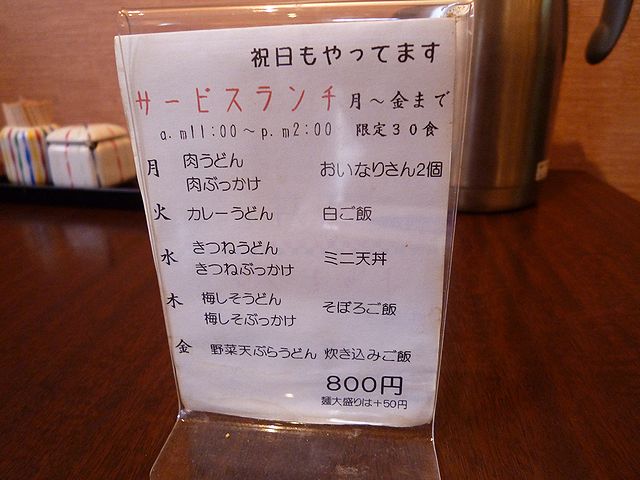 祝日もやってます
サービスランチ 月～金まで
a.m11:00～p.m2:00 限定30食
月 肉うどん おいなりさん2個
肉ぶっかけ
火 カレーうどん 白ご飯
水 きつねうどん ミニ天丼
きつねぶっかけ
木 梅しそうどん そぼろご飯
梅しそぶっかけ
金 野菜天ぷらうどん 炊き込みご飯
800円
麺大盛りは+50円